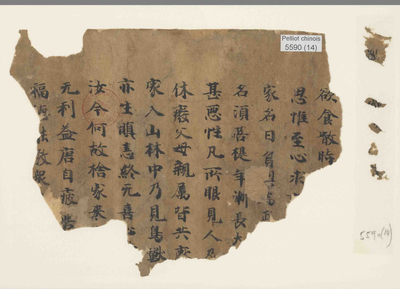 Pelliot chinois
5590 (14)
欲食散時
思惟至心求
家名曰負
名須菩提年漸長大
甚惡性凡所眼見人及
休癈父母親屬皆共
家入山林中乃見鳥獸
亦生瞋恚終无喜
汝今何故捨家來
无利益唐自疲苦
福
5590(14)